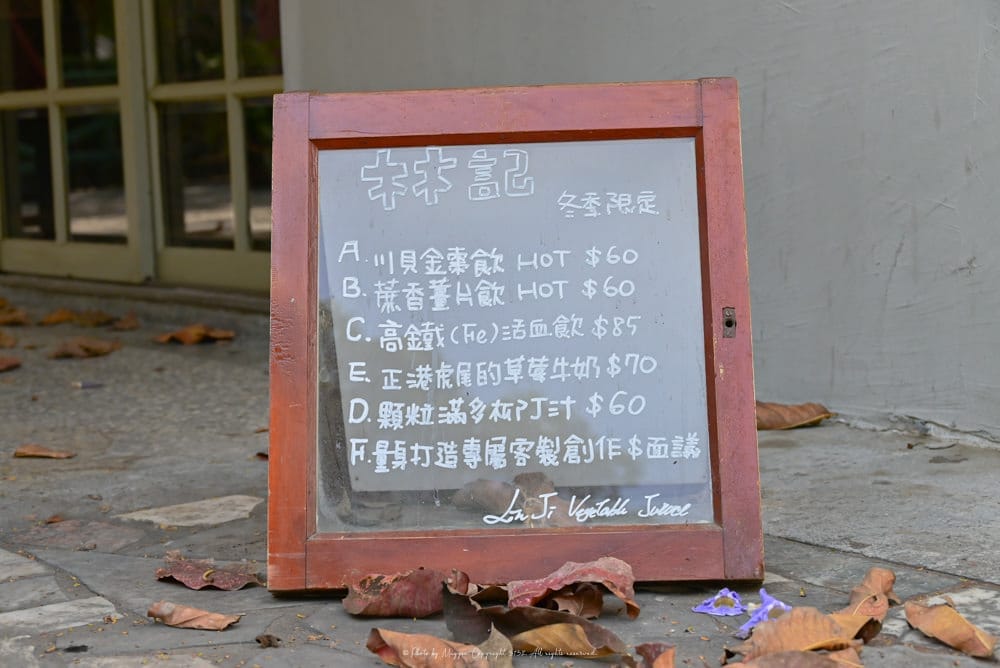 林記
冬季限定
A. 川貝金棗飲 HOT $60
B. 蔗香薑片飲 HOT $60
C. 高鐵(Fe)活血飲 $85
E. 正港虎尾的草莓牛奶 $70
D. 顆粒滿多柳丁汁 $60
F. 量身打造專屬客製創作 $面議
Lin Ji Vegetable Juice
© Photo by
Copyright
All rights reserved.